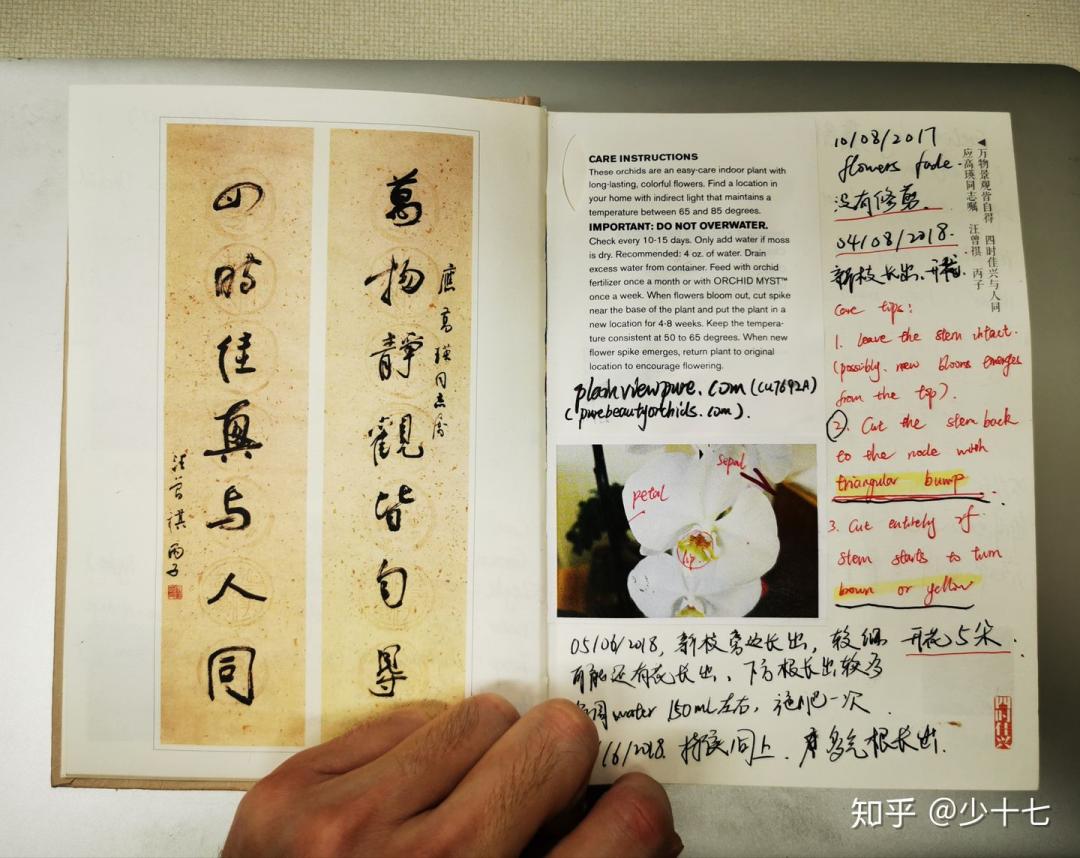 萬物靜觀皆自得
應高瑛同志屬
四時佳興与人同
汪曾祺 丙子
CARE INSTRUCTIONS
These orchids are an easy-care indoor plant with
long-lasting, colorful flowers. Find a location in
your home with indirect light that maintains a
temperature between 65 and 85 degrees.
IMPORTANT: DO NOT OVERWATER.
Check every 10-15 days. Only add water if moss
is dry. Recommended: 4 oz. of water. Drain
excess water from container. Feed with orchid
fertilizer once a month or with ORCHID MYST™
once a week. When flowers bloom out, cut spike
near the base of the plant and put the plant in a
new location for 4-8 weeks. Keep the tempera-
ture consistent at 50 to 65 degrees. When new
flower spike emerges, return plant to original
location to encourage flowering.
(purebeautyorchids.com).
petal
sepal
lip
10/08/2017
flowers fade.
没有修剪.
04/08/2018.
新枝长出、开花.
◀万物景观皆自得 四时佳兴与人同
应高瑛同志嘱 汪曾祺 丙子
Care tips:
1. leave the stem intact.
(possibly. new blooms emerges
from the top).
2. Cut the stem back
to the node with
triangular bump.
3. Cut entirely if
stem starts to turn
brown or yellow
05/06/2018, 新枝旁边长出, 较细 开花5朵.
可能还有花长出、下方根长出较多
water 150ml左右, 施肥一次.
/6/2018. 持续同上. 根长出.
四时佳兴
知乎 @少十七